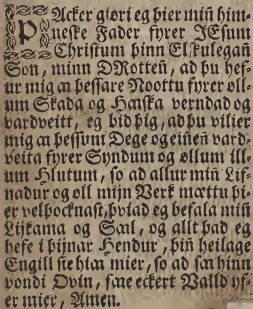 PAcker giøri eg hier miñ him-
neske Fader fyrer JEsum
Christum þinn Elskulegañ
Son, minn DRotteñ, ad þu hef-
ur mig aa þessare Noottu fyrer øll-
um Skada og Hæska verndad og
vardveitt, eg bid þig, ad þu vilier
mig aa þessum Dege og eineñ vard-
veita fyrer Syndum og øllum ill-
um Hlutum, so ad allur miñ Lif-
nadur og øll mijn Verk mættu þi-
er velþocknast, þviad eg befala miñ
Lijkama og Sæl, og allt had eg
hefe i þijnar Hendur, þiñ heilage
Engill sie hiaa mier, so ad saa hinn
vondi Ovin, faae eckert Valld yf-
er mier, Amen.